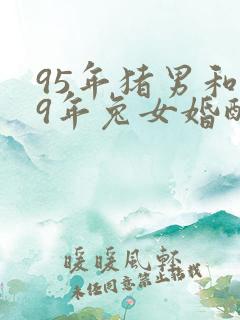 95年猪男和
9年兔女婚配
暖暖風軒
未经同意禁止转载